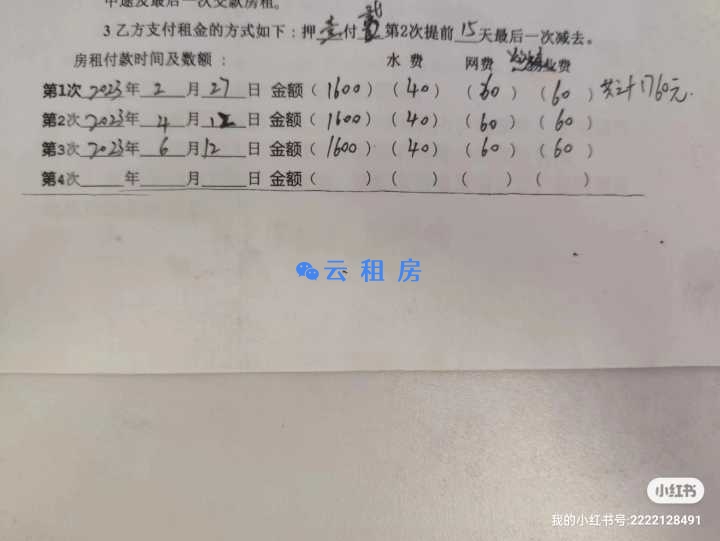 中途及最后一次交款房租。
3乙方支付租金的方式如下：押壹付贰第2次提前15天最后一次减去。
房租付款时间及数额： 水费 网费 业费
第1次2023年2月27日 金额（1600）（40）（60）（60）共计1760元.
第2次2023年4月12日 金额（1600）（40）（60）（60）
第3次2023年6月12日 金额（1600）（40）（60）（60）
第4次____年____月____日 金额（ ）（ ）（ ）（ ）
云租房
小红书
我的小红书号:2222128491